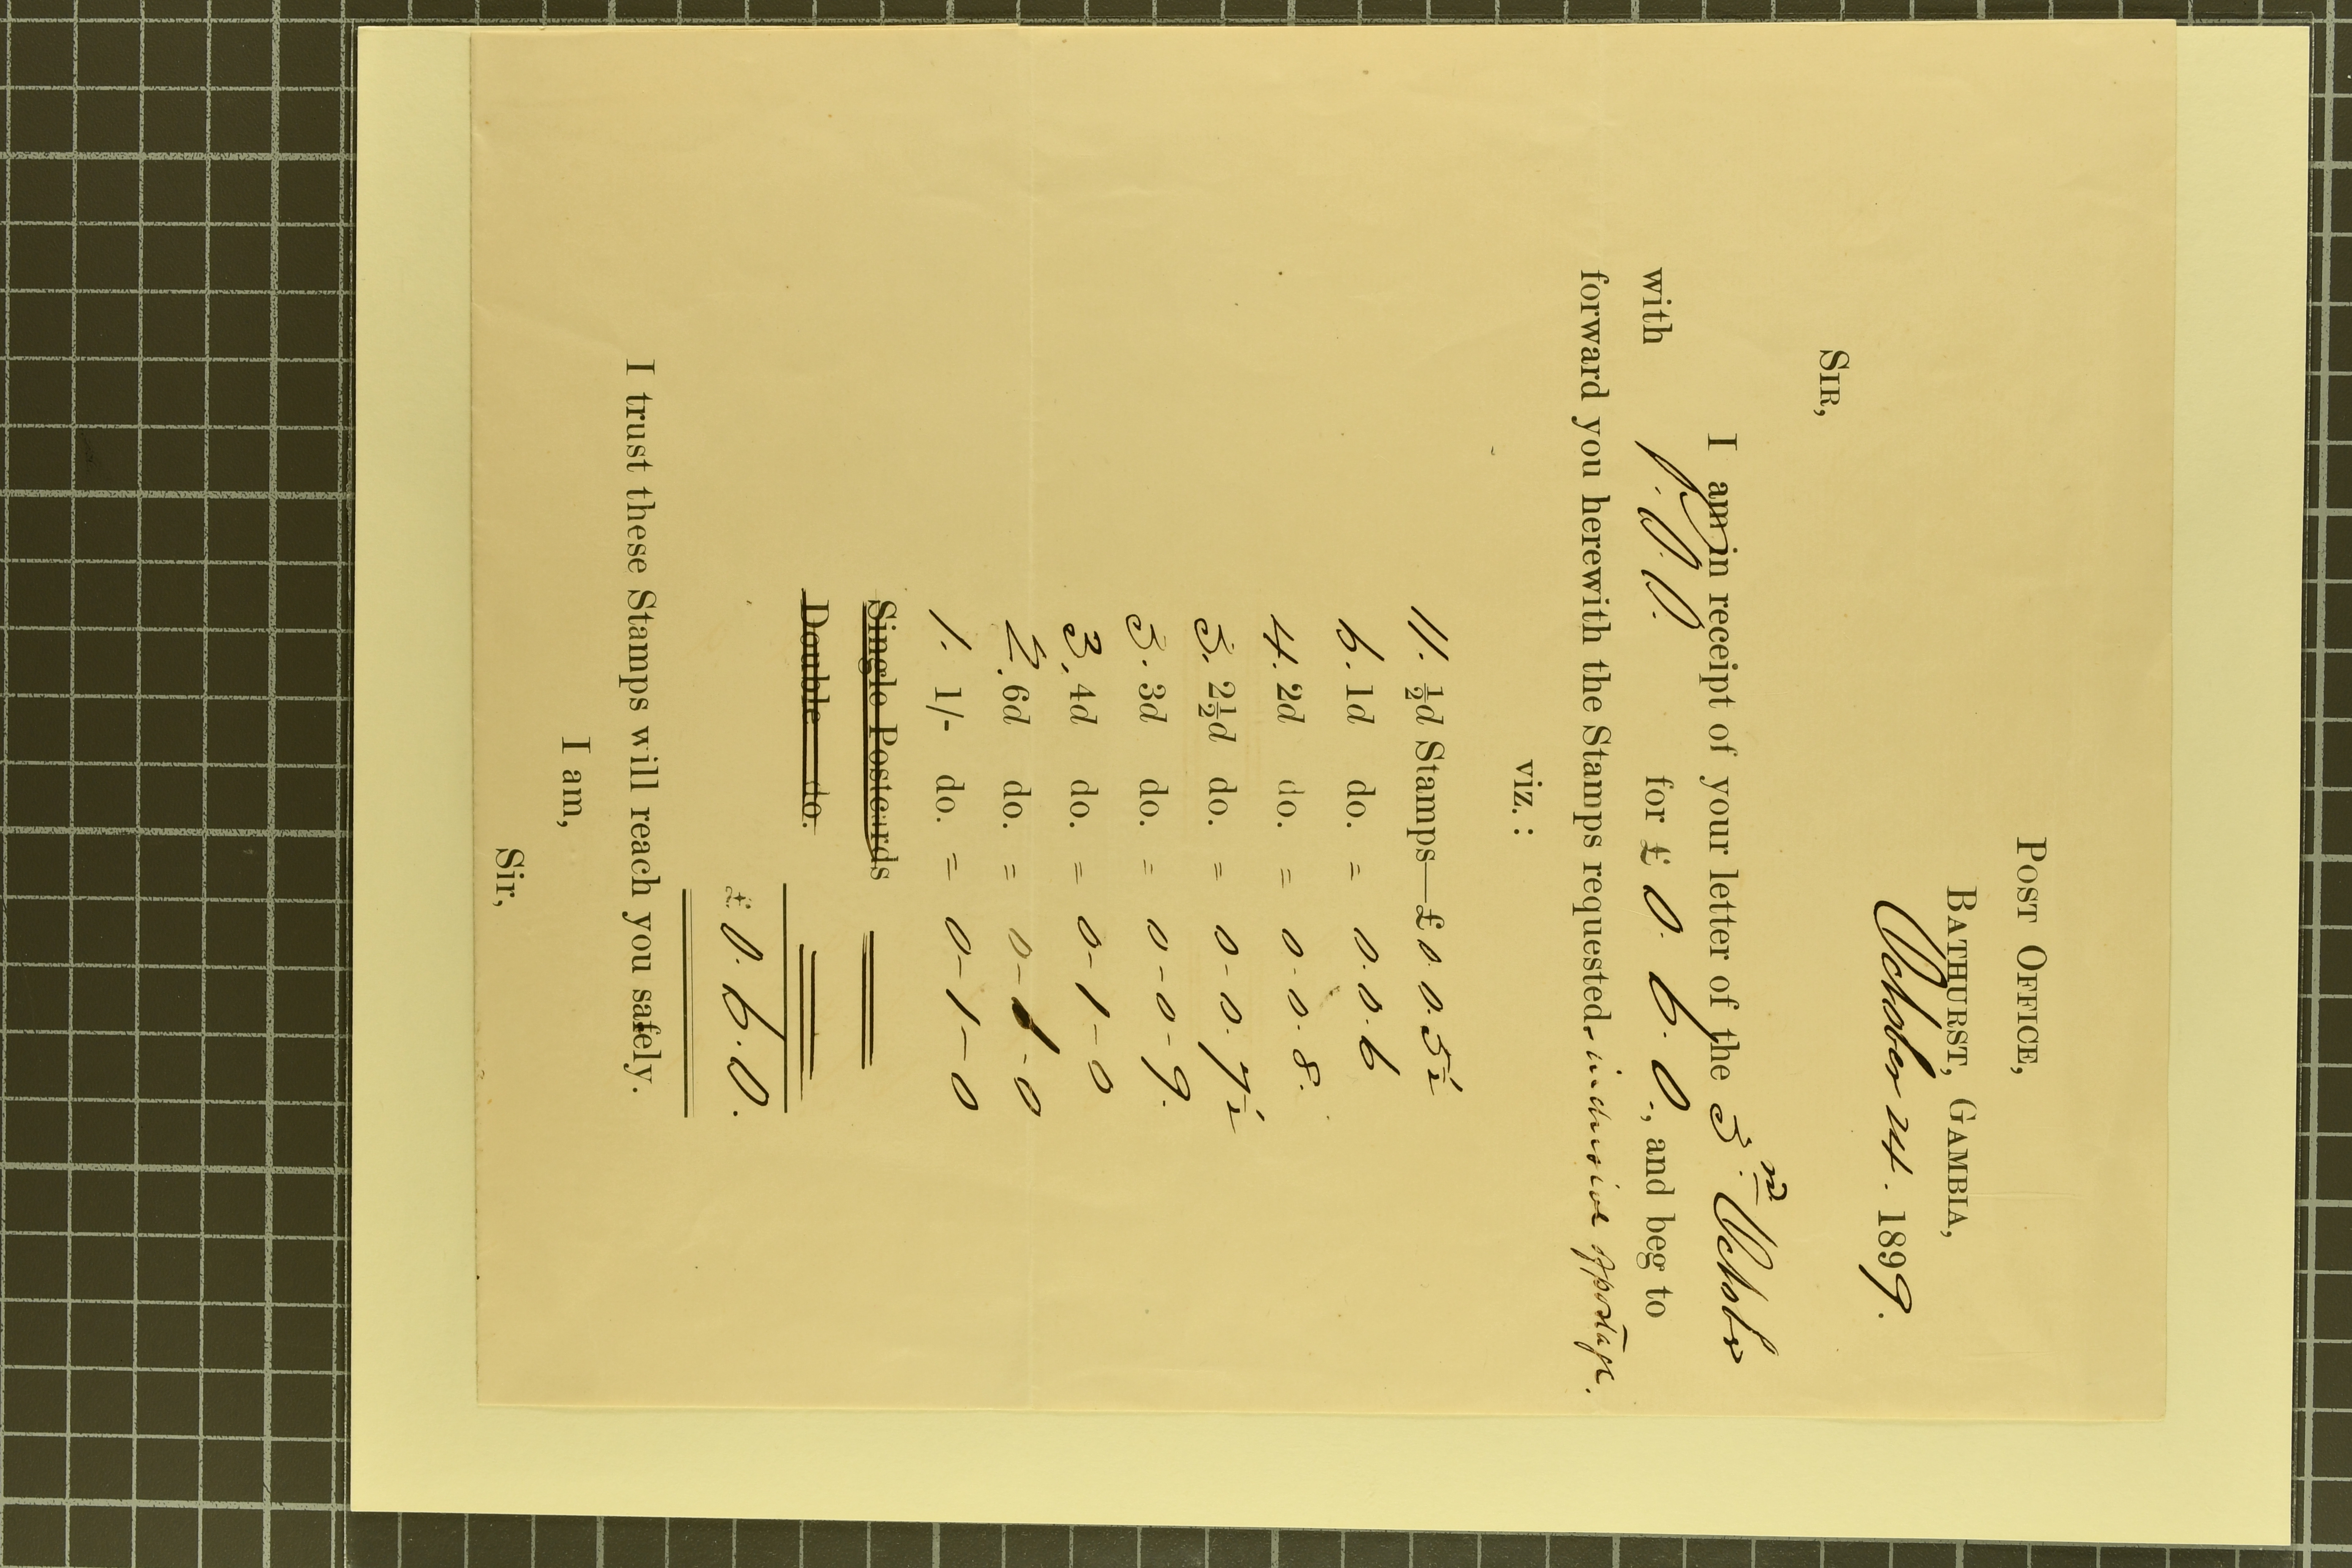 POST OFFICE,
BATHURST, GAMBIA,
October 24. 1899.
SIR,
I am in receipt of your letter of the 3rd October
with P.O.O. for £ 0. 6. 0., and beg to
forward you herewith the Stamps requested. inclusive of postage.
viz. :
11. ½d Stamps—£ 0. 0. 5½
6. 1d do. = 0. 0. 6
4. 2d do. = 0. 0. 8.
3. 2½d do. = 0-0. 7½
3. 3d do. = 0-0-9.
3. 4d do. = 0-1-0
2. 6d do. = 0-1-0
1. 1/- do. = 0-1-0
Single Postcards
Double do.
£ 0. 6. 0.
I trust these Stamps will reach you safely.
I am,
Sir,